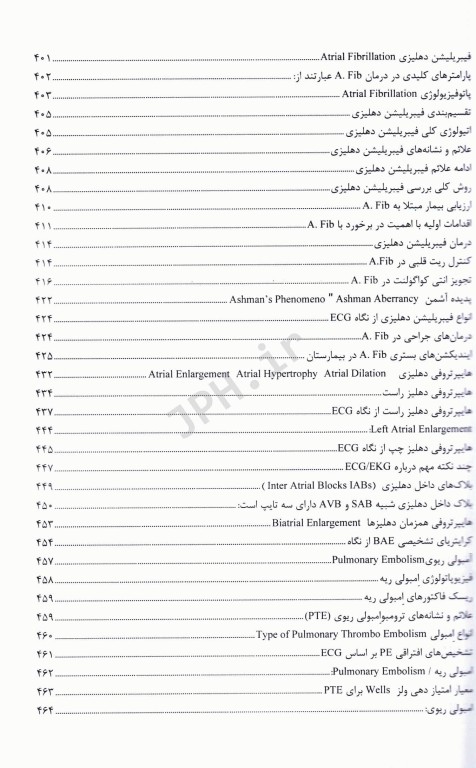 فیبریلیشن دهلیزی Atrial Fibrillation ........ ۴۰۱
پارامترهای کلیدی در درمان A. Fib عبارتند از: ........ ۴۰۲
پاتوفیزیولوژی Atrial Fibrillation ........ ۴۰۳
تقسیم‌بندی فیبریلیشن دهلیزی ........ ۴۰۵
اتیولوژی کلی فیبریلیشن دهلیزی ........ ۴۰۵
علائم و نشانه‌های فیبریلیشن دهلیزی ........ ۴۰۶
ادامه علائم فیبریلیشن دهلیزی ........ ۴۰۸
روش کلی بررسی فیبریلیشن دهلیزی ........ ۴۰۸
ارزیابی بیمار مبتلا به A. Fib ........ ۴۱۰
اقدامات اولیه با اهمیت در برخورد با A. Fib ........ ۴۱۱
درمان فیبریلیشن دهلیزی ........ ۴۱۴
کنترل ریت قلبی در A.Fib ........ ۴۱۴
تجویز انتی کواگولنت در A. Fib ........ ۴۱۶
پدیده آشمن Ashman's Phenomeno " Ashman Aberrancy ........ ۴۲۲
انواع فیبریلیشن دهلیزی از نگاه ECG ........ ۴۲۴
درمان‌های جراحی در A. Fib ........ ۴۲۴
ایندیکشن‌های بستری A. Fib در بیمارستان ........ ۴۲۵
هایپرتروفی دهلیزی Atrial Enlargement Atrial Hypertrophy Atrial Dilation ........ ۴۳۲
هایپرتروفی دهلیز راست ........ ۴۳۴
هایپرتروفی دهلیز راست از نگاه ECG ........ ۴۳۷
Left Atrial Enlargement: ........ ۴۴۴
هایپرتروفی دهلیز چپ از نگاه ECG ........ ۴۴۵
چند نکته مهم درباره ECG/EKG ........ ۴۴۷
بلاک‌های داخل دهلیزی (Inter Atrial Blocks IABs) ........ ۴۴۹
بلاک داخل دهلیزی شبیه SAB و AVB دارای سه تایپ است: ........ ۴۵۰
هایپرتروفی همزمان دهلیزها Biatrial Enlargement ........ ۴۵۳
کرایتریای تشخیصی BAE از نگاه ........ ۴۵۴
آمبولی ریوی Pulmonary Embolism ........ ۴۵۷
فیزیوپاتولوژی امبولی ریه ........ ۴۵۸
ریسک فاکتورهای امبولی ریه ........ ۴۵۹
علائم و نشانه‌های ترومبوامبولی ریوی (PTE) ........ ۴۵۹
انواع امبولی Type of Pulmonary Thrombo Embolism ........ ۴۶۰
تشخیص‌های افتراقی PE بر اساس ECG ........ ۴۶۱
امبولی ریه / Pulmonary Embolism: ........ ۴۶۲
معیار امتیاز دهی ولز Wells برای PTE ........ ۴۶۳
امبولی ریوی: ........ ۴۶۴
JPH.ir